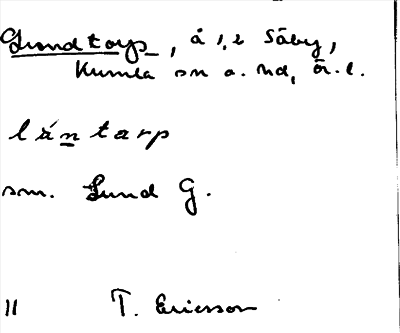 Grondtorp, å 1,2 Säby,
Kumla sn o. hd, Ör. l.
låntarp
sm. Lund G.
11 T. Ericsson